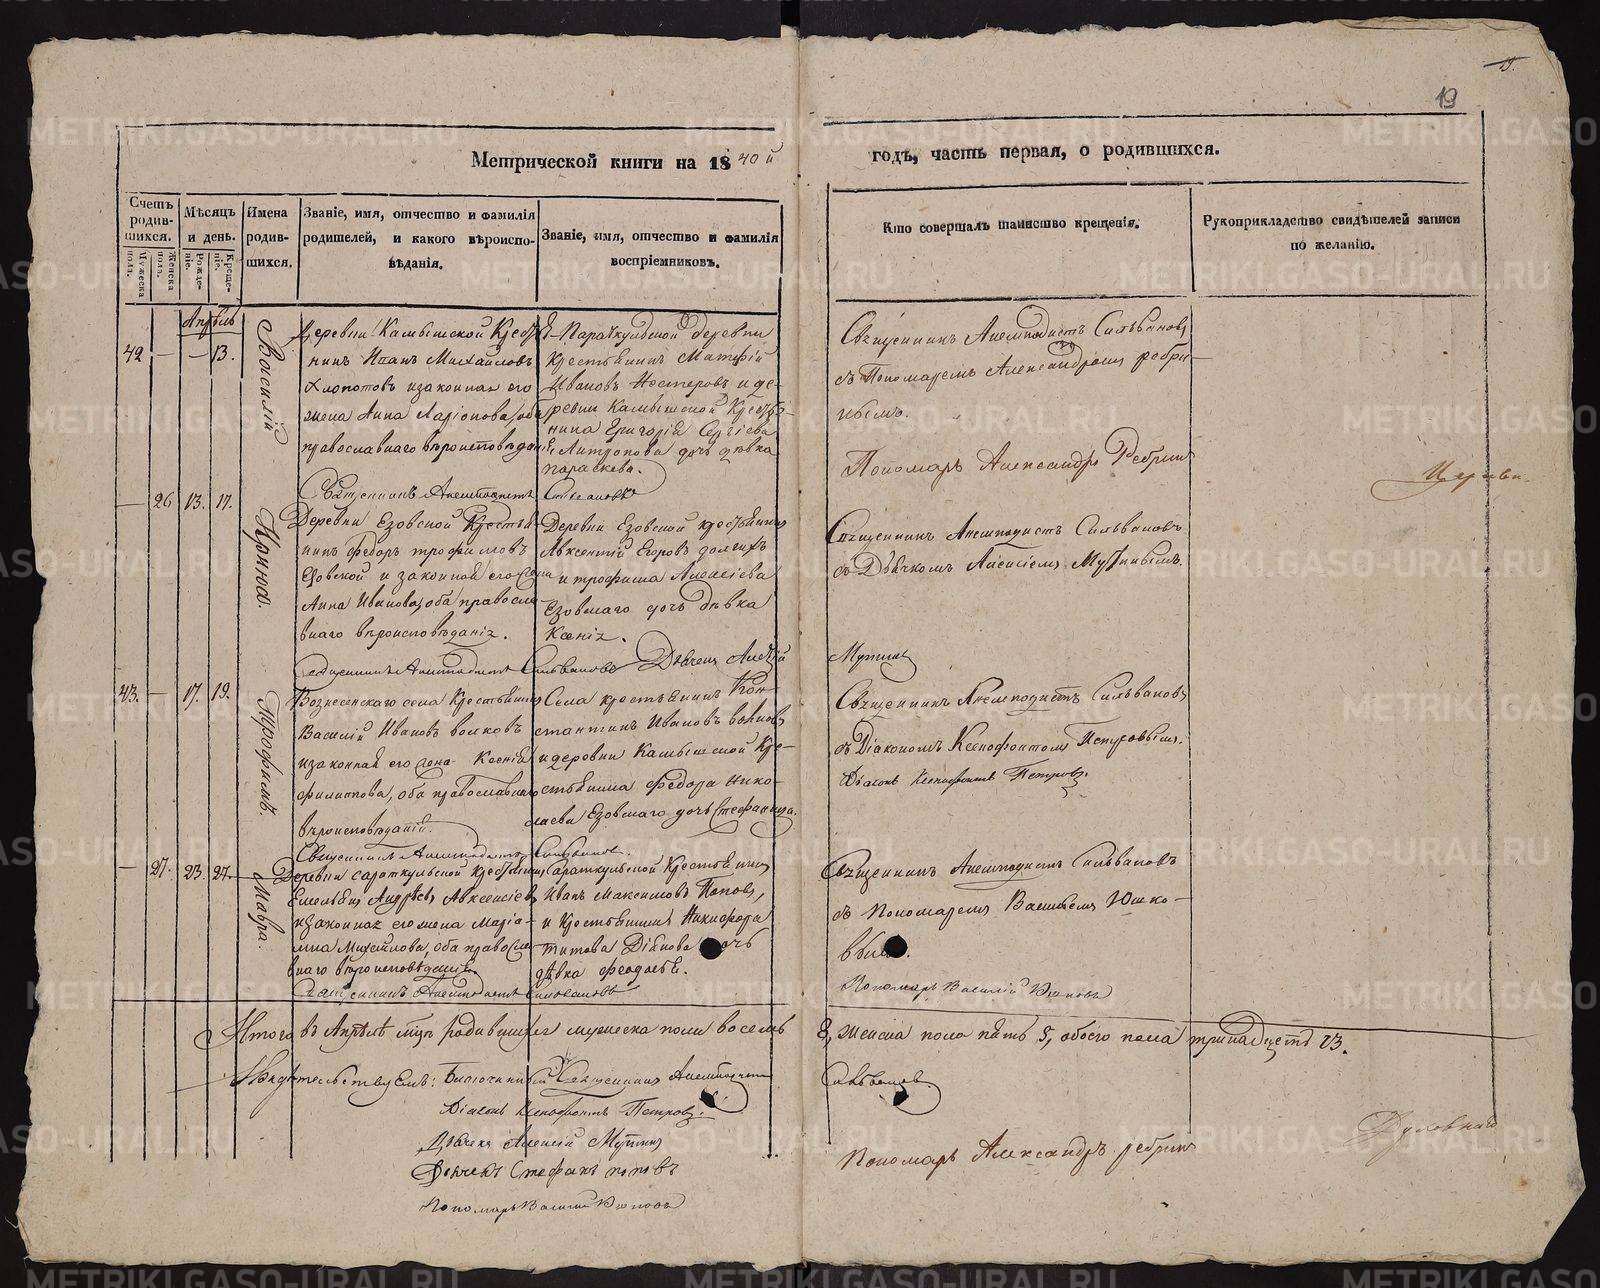 19
Метрической книги на 1840й
годъ, часть первая, о родившихся.
Счетъ родившихся.
Мужеска пола.
Женска пола.
Мѣсяцъ и день.
Рожденіе.
Крещеніе.
Имена родившихся.
Званіе, имя, отчество и фамилія родителей, и какого вѣроисповѣданія.
Званіе, имя, отчество и фамилія воспріемниковъ.
Кто совершалъ таинство крещенія.
Рукоприкладство свидѣтелей записи по желанію.
Апрѣль
42 — — 13.
Василій
Деревни Камышской Крестья
нинъ Иванъ Михайловъ
Хлопотовъ и законная его
жена Анна Ларіонова, оба
православнаго вѣроисповѣдан
деревни
Крестьянинъ Матфій
Ивановъ Нестеровъ и де-
ревни Камышской Крестья-
нина Григорія Сергіева
Антропова дочь дѣвка
Параскева.
Священникъ Анемподистъ Сильвановъ
съ Пономаремъ Александромъ Ребри-
нымъ.
Пономарь Александръ Ребринъ
Церкви
Священникъ Анемподистъ Сильвановъ
— 26 13. 17.
Деревни Езовской Крестья
нинъ Федоръ Трофимовъ
Езовской и законная его жена
Анна Иванова, оба правосла
внаго вѣроисповѣданія.
Деревни Езовской крестьянинъ
Авксентій Егоровъ
и Трофима Алексіева
Езовскаго дочь дѣвка
Ксенія.
Священникъ Анемподистъ Сильвановъ
съ Дьячкомъ Алексіемъ Мутинымъ.
Священникъ Анемподистъ Сильвановъ Дьячекъ Алексій
Мутинъ
43. — 17. 19.
Трофимъ.
Вознесенскаго села Крестьянинъ
Василій Ивановъ Волковъ
и законная его жена Ксенія
Филиппова, оба православнаго
вѣроисповѣданія.
Села крестьянинъ Кон-
стантинъ Ивановъ Волковъ
и деревни Камышской Кре-
стьянина Федора Нико-
лаева Езовскаго дочь Стефанида.
Священникъ Анемподистъ Сильвановъ
съ Діакономъ Ксенофонтомъ Петровымъ.
Діаконъ Ксенофонтъ Петровъ.
Священникъ Анемподистъ Сильвановъ
— 27. 23. 27.
Мавра.
Деревни Сараткульской Крестьянинъ
Емельянъ Андреевъ Авксентіевъ
и законная его жена Маріа-
мна Михайлова, оба правосла
внаго вѣроисповѣданія.
Сараткульской Крестьянинъ
Иванъ Максимовъ Поповъ,
и Крестьянина Никифора
Титова дочь
дѣвка Феодосья.
Священникъ Анемподистъ Сильвановъ
съ Пономаремъ Василіемъ Юшко-
вымъ.
Священникъ Анемподистъ Сильвановъ
Пономарь Василій Юшковъ
Итого въ Апрѣлѣ м-цѣ родившихся мужеска пола восемь
8, женска пола пять 5, обоего пола тринадцать 13.
Свидѣтельствуемъ: Благочинный Священникъ Анемподистъ
Сильвановъ.
Діаконъ Ксенофонтъ Петровъ.
Дьячекъ Алексій Мутинъ
Дьячекъ Стефанъ Поповъ
Пономарь Василій Юшковъ
Пономарь Александръ Ребринъ
Духовная
METRIKI.GASO-URAL.RU